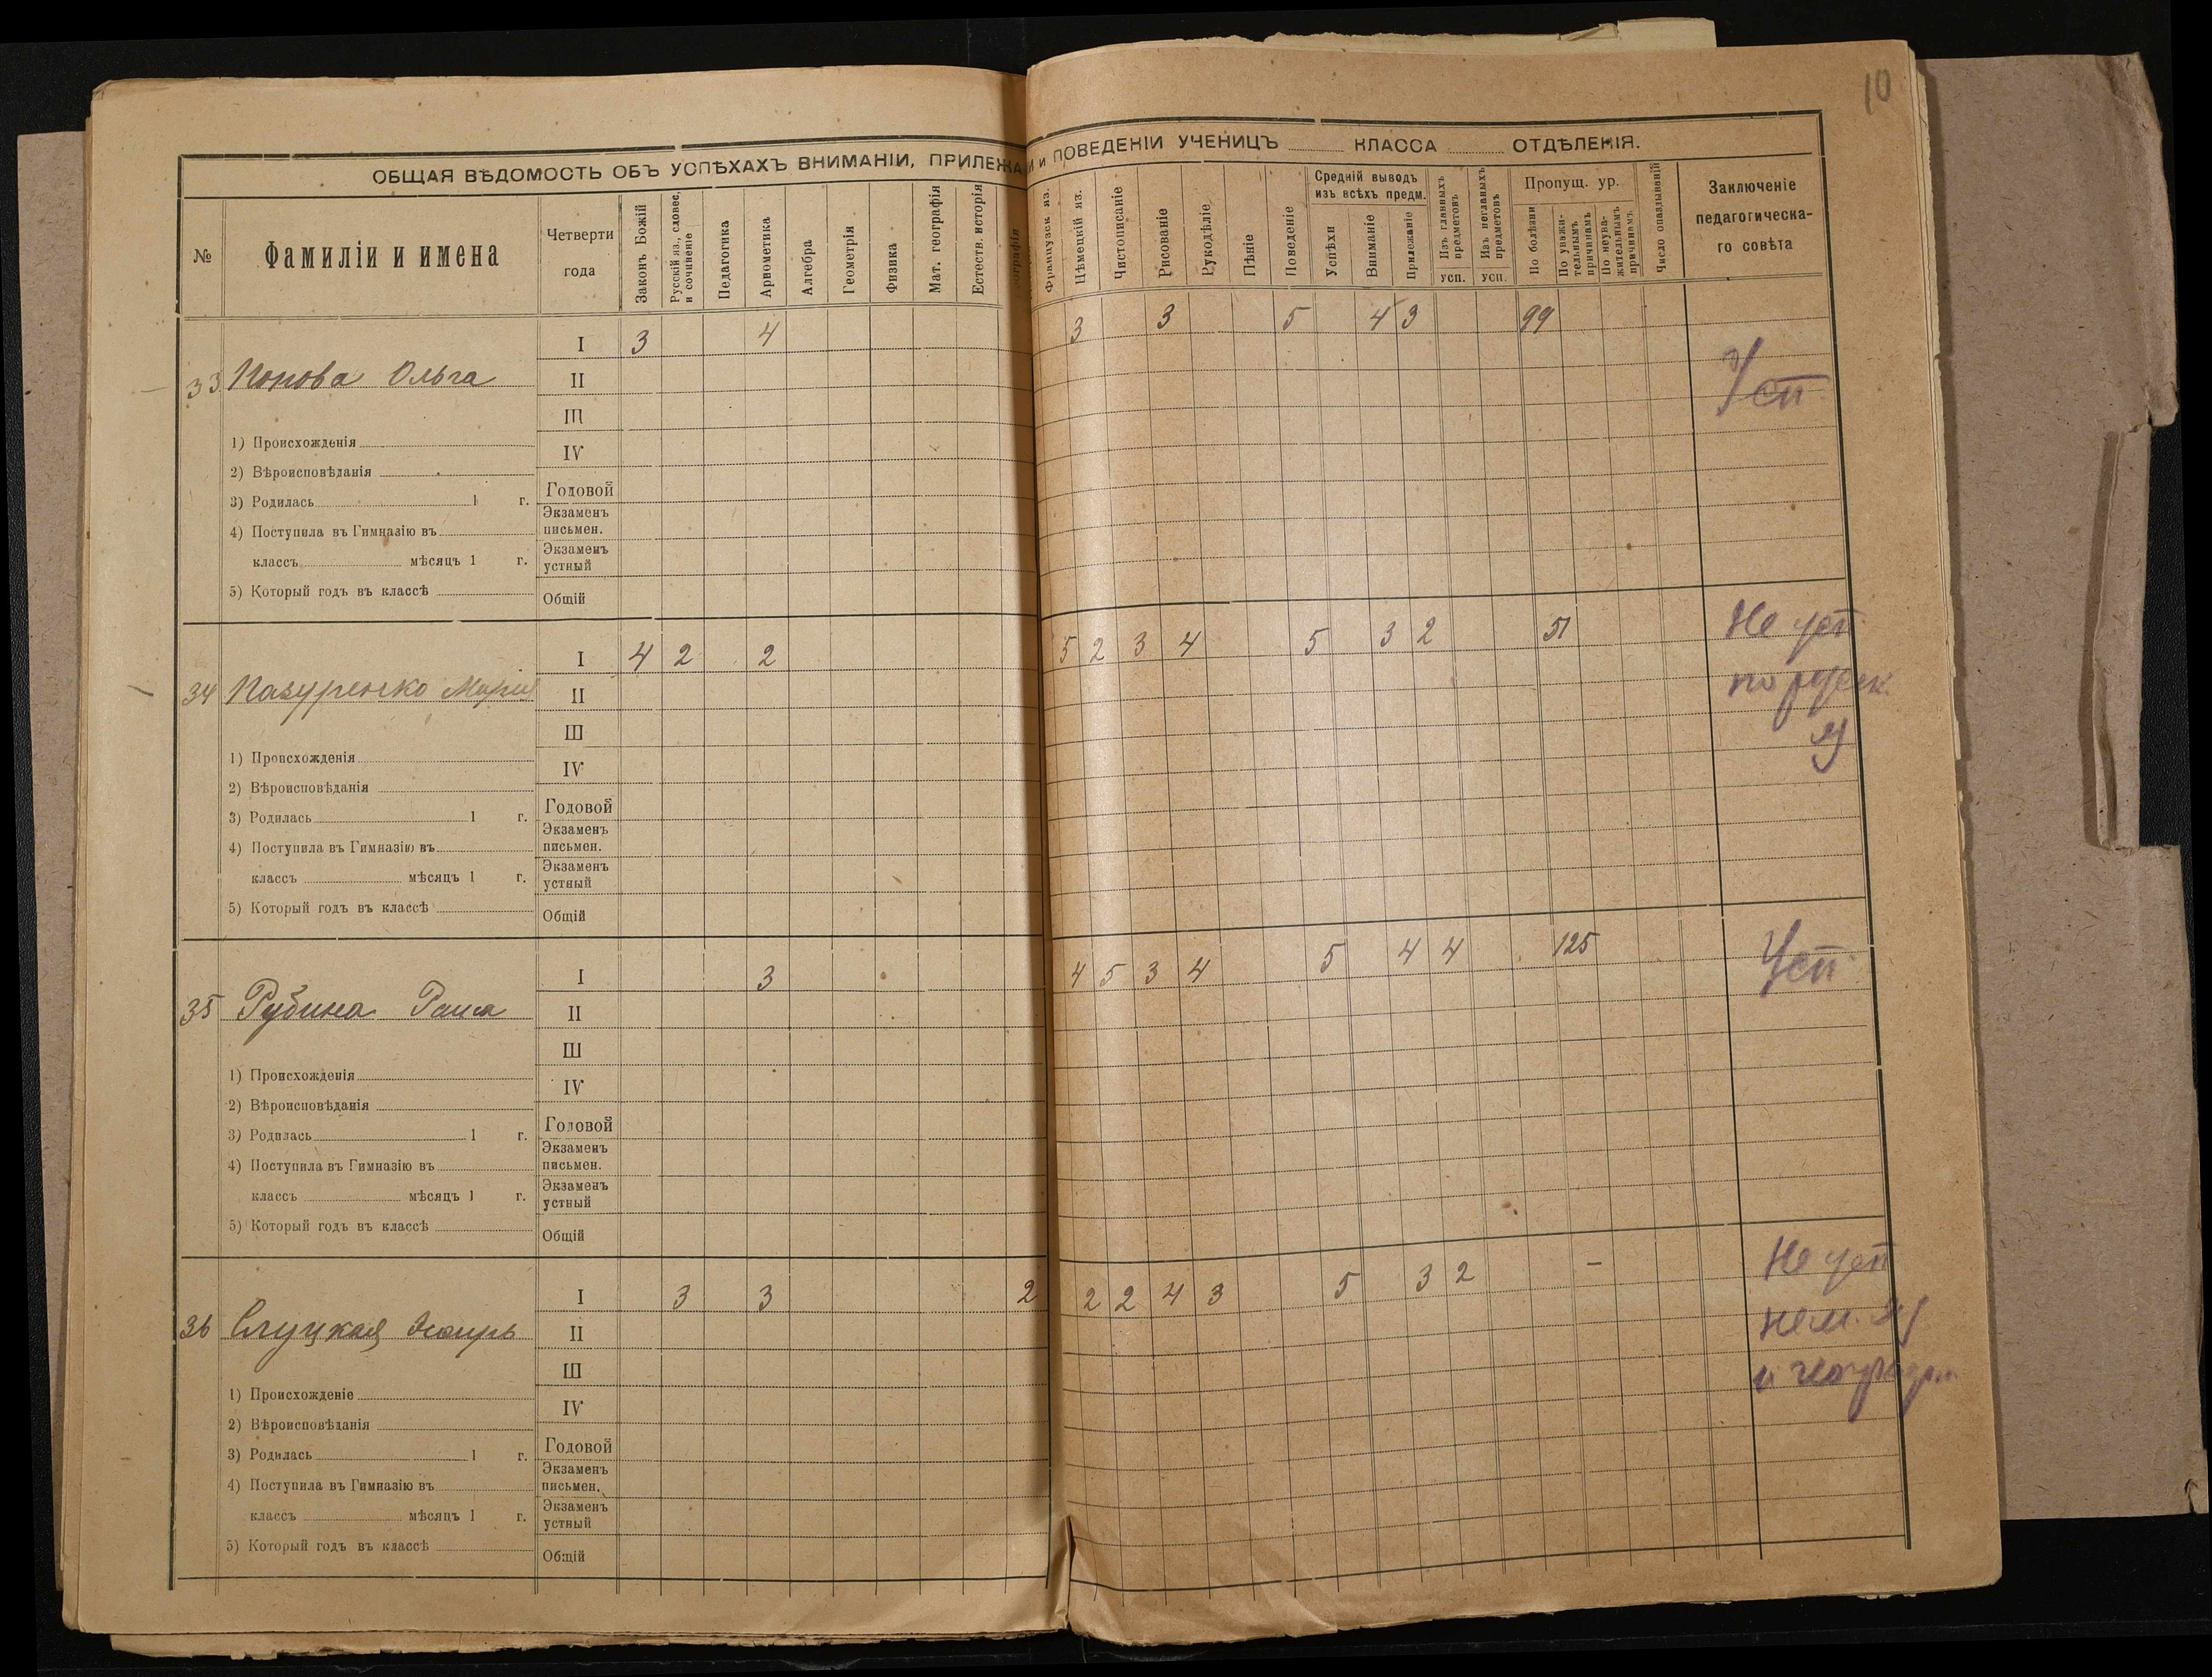 10
ОБЩАЯ ВѢДОМОСТЬ ОБЪ УСПѢХАХЪ ВНИМАНІИ, ПРИЛЕЖА И и ПОВЕДЕНІИ УЧЕНИЦЪ КЛАССА ОТДѢЛЕНІЯ.
№
Фамиліи и имена
Четверти года
Законъ Божій
Русскій яз., словес. и сочиненіе
Педагогика
Арнометика
Алгебра
Геометрія
Физика
Мат. географія
Естеств. исторія
Французск яз.
Нѣмецкій яз.
Чистописаніе
Рисованіе
Рукодѣліе
Пѣніе
Поведеніе
Средній выводъ изъ всѣхъ предм.
Успѣхи
Внимание
Прилежаніе
Изъ главныхъ предметовъ
усп.
Изъ неглавныхъ предметовъ
усп.
Пропущ. ур.
По болѣзни
По уважительнымъ причинамъ
По неуважительнымъ причинамъ
Число опаздываній
Заключеніе
педагогическа-
го совѣта
I 3 4 3 3 5 4 3 99
33 Попова Ольга II Усп
III
1) Происхожденія IV
2) Вѣроисповѣданія
3) Родилась 1 г. Годовой
4) Поступила въ Гимназію въ Экзаменъ письмен.
классъ мѣсяцъ 1 г. Экзаменъ устный
5) Который годъ въ классѣ Общій
I 4 2 2 5 2 3 4 5 3 2 51 Не усп
34 Пазуренко Мария II по русск.
III я
1) Происхожденія IV
2) Вѣроисповѣданія
3) Родилась 1 г. Годовой
4) Поступила въ Гимназію въ Экзаменъ письмен.
классъ мѣсяцъ 1 г. Экзаменъ устный
5) Который годъ въ классѣ Общій
I 3 4 5 3 4 5 4 4 125 Усп
35 Рубина Раиса II
III
1) Происхожденія IV
2) Вѣроисповѣданія
3) Родилась 1 г. Годовой
4) Поступила въ Гимназію въ Экзаменъ письмен.
классъ мѣсяцъ 1 г. Экзаменъ устный
5) Который годъ въ классѣ Общій
I 3 3 2 2 2 4 3 5 3 2 – Не усп
36 Слуцкая Эсѳирь II нем. яз
III и географ.
1) Происхожденіе IV
2) Вѣроисповѣданія
3) Родилась 1 г. Годовой
4) Поступила въ Гимназію въ Экзаменъ письмен.
классъ мѣсяцъ 1 г. Экзаменъ устный
5) Который годъ въ классѣ Общій